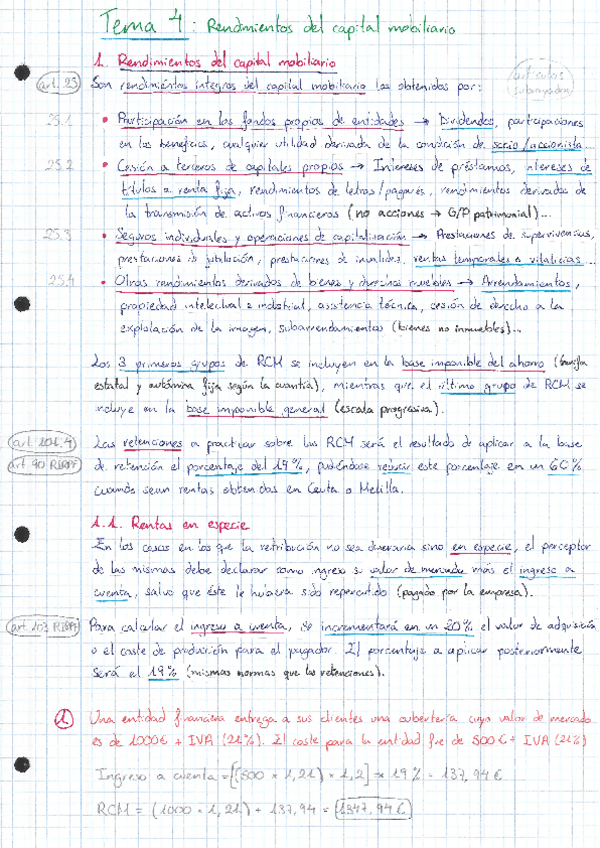 Tema 4: Rendimientos del capital mobiliario
1. Rendimientos del capital mobiliario
art. 25 Son rendimientos íntegros del capital mobiliario los obtenidos por: artículos subrayados
25.1 • Participación en los fondos propios de entidades → Dividendos, participaciones
en los beneficios, cualquier utilidad derivada de la condición de socio/accionista...
25.2 • Cesión a terceros de capitales propios → Intereses de préstamos, intereses de
títulos a renta fija, rendimientos de letras/pagarés, rendimientos derivados de
la transmisión de activos financieros (no acciones → G/P patrimonial)...
25.3 • Seguros individuales y operaciones de capitalización → Prestaciones de supervivencias,
prestaciones de jubilación, prestaciones de invalidez, rentas temporales o vitalicias...
25.4 • Otros rendimientos derivados de bienes y derechos muebles → Arrendamientos,
propiedad intelectual e industrial, asistencia técnica, cesión de derecho a la
explotación de la imagen, subarrendamientos (bienes no inmuebles)...
Los 3 primeros grupos de RCM se incluyen en la base imponible del ahorro (tarifa
estatal y autonómica fija según la cuantía), mientras que el último grupo de RCM se
incluye en la base imponible general (escala progresiva).
art. 101.4 Las retenciones a practicar sobre los RCM será el resultado de aplicar a la base
art. 90 RIRPF de retención el porcentaje del 19%, pudiéndose reducir este porcentaje en un 60%
cuando sean rentas obtenidas en Ceuta o Melilla.
1.1. Rentas en especie
En los casos en los que la retribución no sea dineraria sino en especie, el perceptor
de las mismas debe declarar como ingreso su valor de mercado más el ingreso a
cuenta, salvo que éste le hubiera sido repercutido (pagado por la empresa).
art. 103 RIRPF Para calcular el ingreso a cuenta, se incrementará en un 20% el valor de adquisición
o el coste de producción para el pagador. El porcentaje a aplicar posteriormente
será el 19% (mismas normas que las retenciones).
1 Una entidad financiera entrega a sus clientes una cubertería cuyo valor de mercado
es de 1000€ + IVA (21%). El coste para la entidad fue de 500€ + IVA (21%)
Ingreso a cuenta = [(500 × 1,21) × 1,2] × 19% = 137,94€
RCM = (1000 × 1,21) + 137,94 = 1347,94€